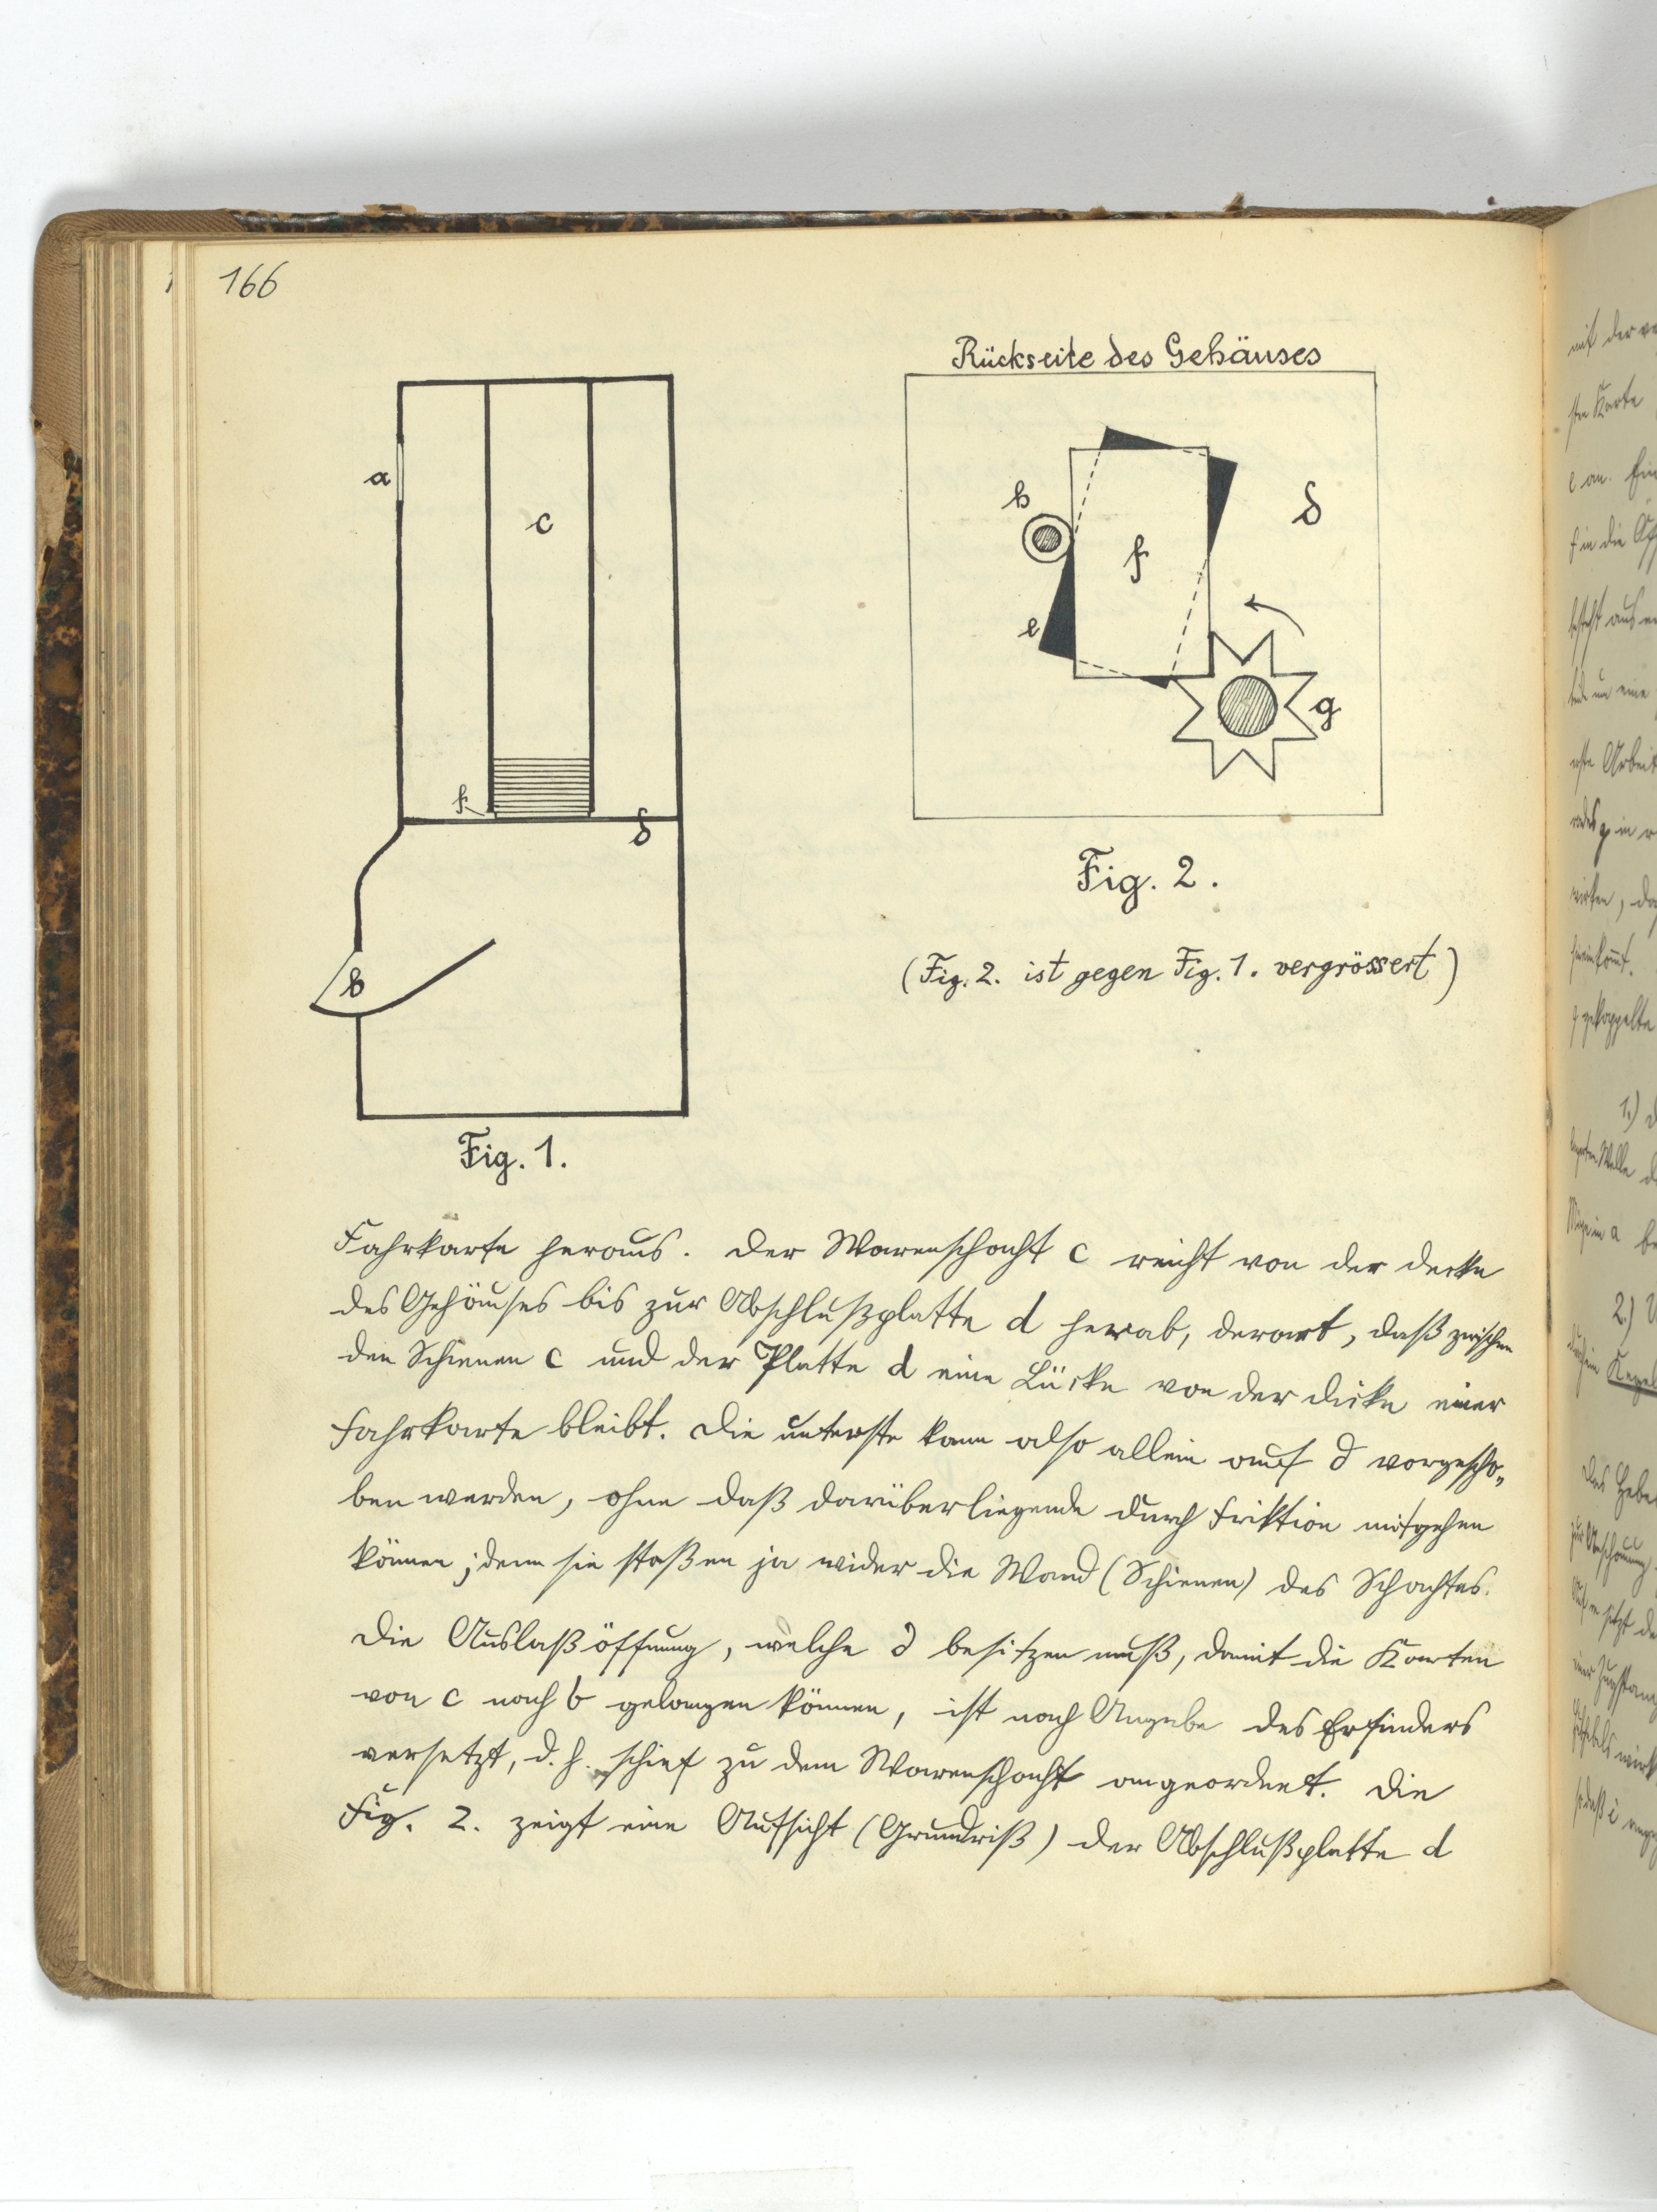 166
Rückseite des Gehäuses
a
c
f
d
b
Fig. 1.
h
f
d
e
g
Fig. 2.
(Fig. 2. ist gegen Fig. 1. vergrössert)
Fahrkarte heraus. Der Warenschacht c reicht von der Decke
des Gehäuses bis zur Abschlußplatte d herab, derart, daß zwischen
den Schienen c und der Platte d eine Lücke von der Dicke einer
Fahrkarte bleibt. Die unterste kann also allein auf d vorgescho„
ben werden, ohne daß darüberliegende durch Friktion mitgehen
können; denn sie stoßen ja wider die Wand (Schienen) des Schachtes.
Die Auslaßöffnung, welche d besitzen muß, damit die Karten
von c nach b gelangen können, ist nach Angabe des Erfinders
versetzt, d. h. schief zu dem Warenschacht angeordnet. Die
Fig. 2. zeigt eine Aufsicht (Grundriß) der Abschlußplatte d
mit der
Karte
e an.
f in die
besteht aus
um eine
g in
1.)
a
2.)